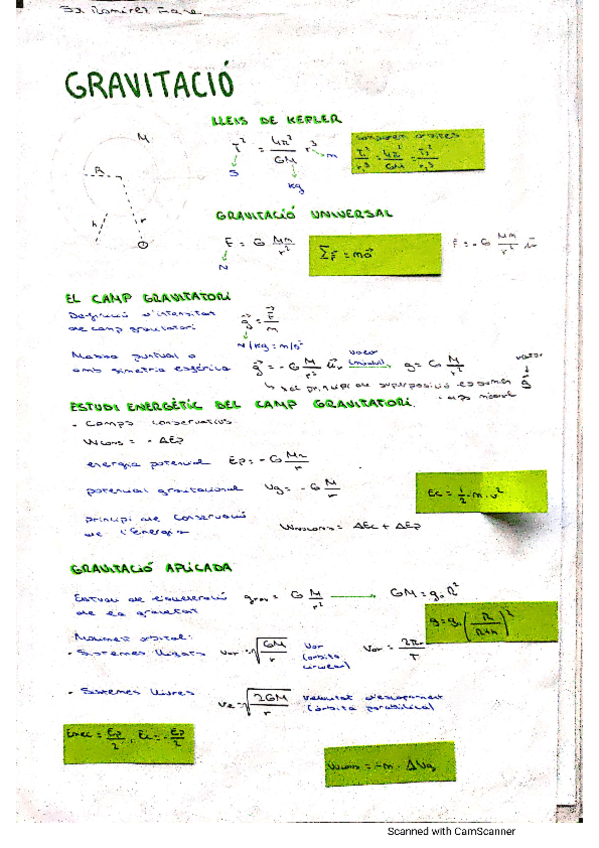 GRAVITACIÓ
LLEIS DE KEPLER
M
T² = 4π²/GM r³
m
S
kg
comparem orbites
T₁²/r₁³ = 4π²/GM = T₂²/r₂³
R
h
r
GRAVITACIÓ UNIVERSAL
F = G Mm/r²
N
ΣF⃗ = ma⃗
F⃗ = -G Mm/r² u⃗
EL CAMP GRAVITATORI
Definició d'intensitat
de camp gravitatori
g⃗ = F⃗/m
N/kg = m/s²
Massa puntual o
amb simetria esfèrica
g⃗ = -G M/r² u⃗r
valor
g = G M/r²
vector
g⃗
pel principi de superposició
ESTUDI ENERGÈTIC DEL CAMP GRAVITATORI.
- Camps conservatius.
Wcons = - ΔEp
energia potencial Ep = -G Mm/r
potencial gravitacional Vg = -G M/r
Ec = ½·m·v²
principi de conservació
de l'energia
Wnocons = ΔEc + ΔEp
GRAVITACIÓ APLICADA
Estudi de l'acceleració
de la gravetat
grav = G M/r² → GM = g₀R²
g = g₀ (R/R+h)²
Moviment orbital:
- Sistemes lligats vor = √GM/r
Vor
(orbita
circular)
Vor = 2πr/T
- Sistemes lliures
ve = √2GM/r
velocitat d'escapament
(òrbita parabòlica)
Emec = Ep/2 , Ec = -Ep/2
Wcons = -m · ΔVg
Scanned with CamScanner